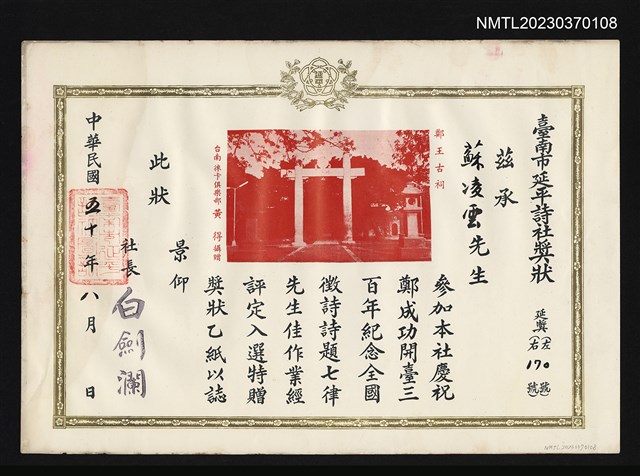 NMTL20230370108
臺南市延平詩社奬狀
延奬(左右)170號
茲承
蘇凌雲先生
鄭王古祠
台南 徠卡俱樂部 黃 得 攝贈
參加本社慶祝
鄭成功開臺三
百年紀念全國
徵詩詩題七律
先生佳作業經
評定入選特贈
奬狀乙紙以誌
景仰
此狀
社長 白劍瀾
中華民國五十年八月 日